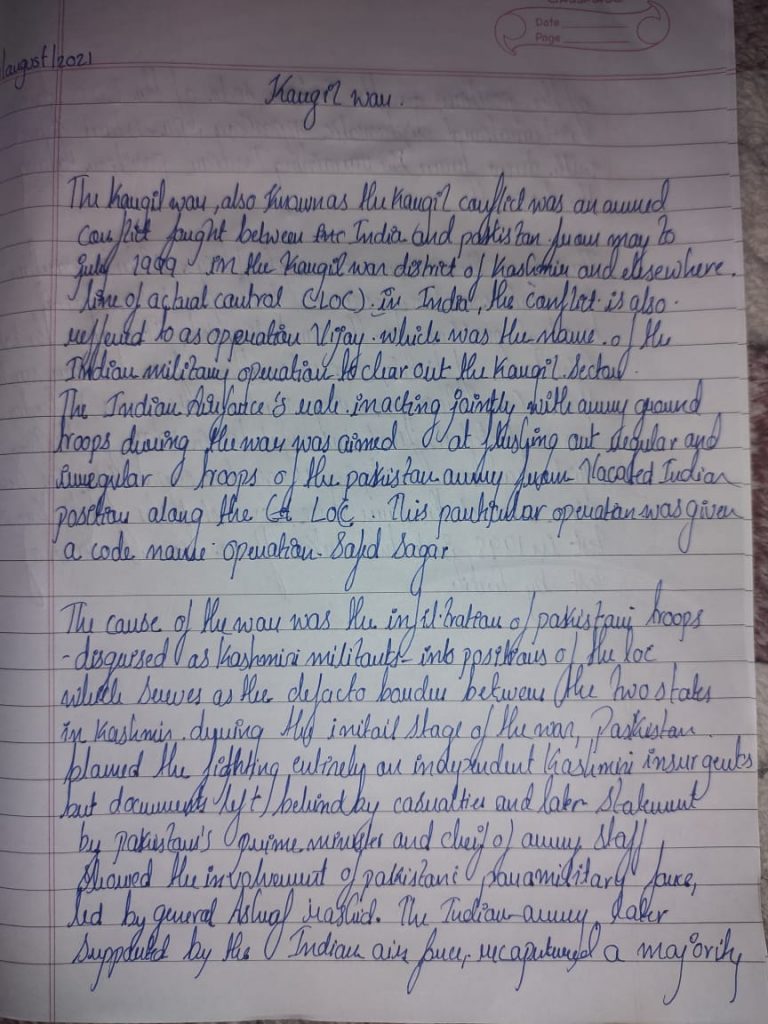 CLASSMATE
Date
Page
/august/2021
Kargil war.
The Kargil war, also Known as the Kargil conflict was an armed
conflict fought between India and pakistan from may to
july 1999 in the Kargil war district of Kashmir and elsewhere.
line of actual control (LOC). in India, the conflict is also.
reffered to as opperation Vijay. which was the name. of the
Indian military operation to clear out the Kargil. Sector.
The Indian Airforce's role. in acting jointly with army ground
troops during the war was aimed at flushing out regular and
irregular troops of the pakistan army from Vacated Indian
position along the LOC. This partipular operation was given
a code name operation. Safd Sagar
The cause of the war was the infiltration of pakistani troops
- disguised as Kashmiri militants- into positions of the loc
which serves as the defacto border between the Two states
in Kashmir. dyring the initail stage of the war, Paskistan.
blamed the fighting entirely on independent Kashmiri insurgents
but documents left behind by casualties and later statement
by pakistan's prime minister and cheif of army staff,
showed the involvement of pakistani paramilitary force,
led by general Ashraf Rashid. The Indian army, later
supported by the Indian air force, recaptured a majority